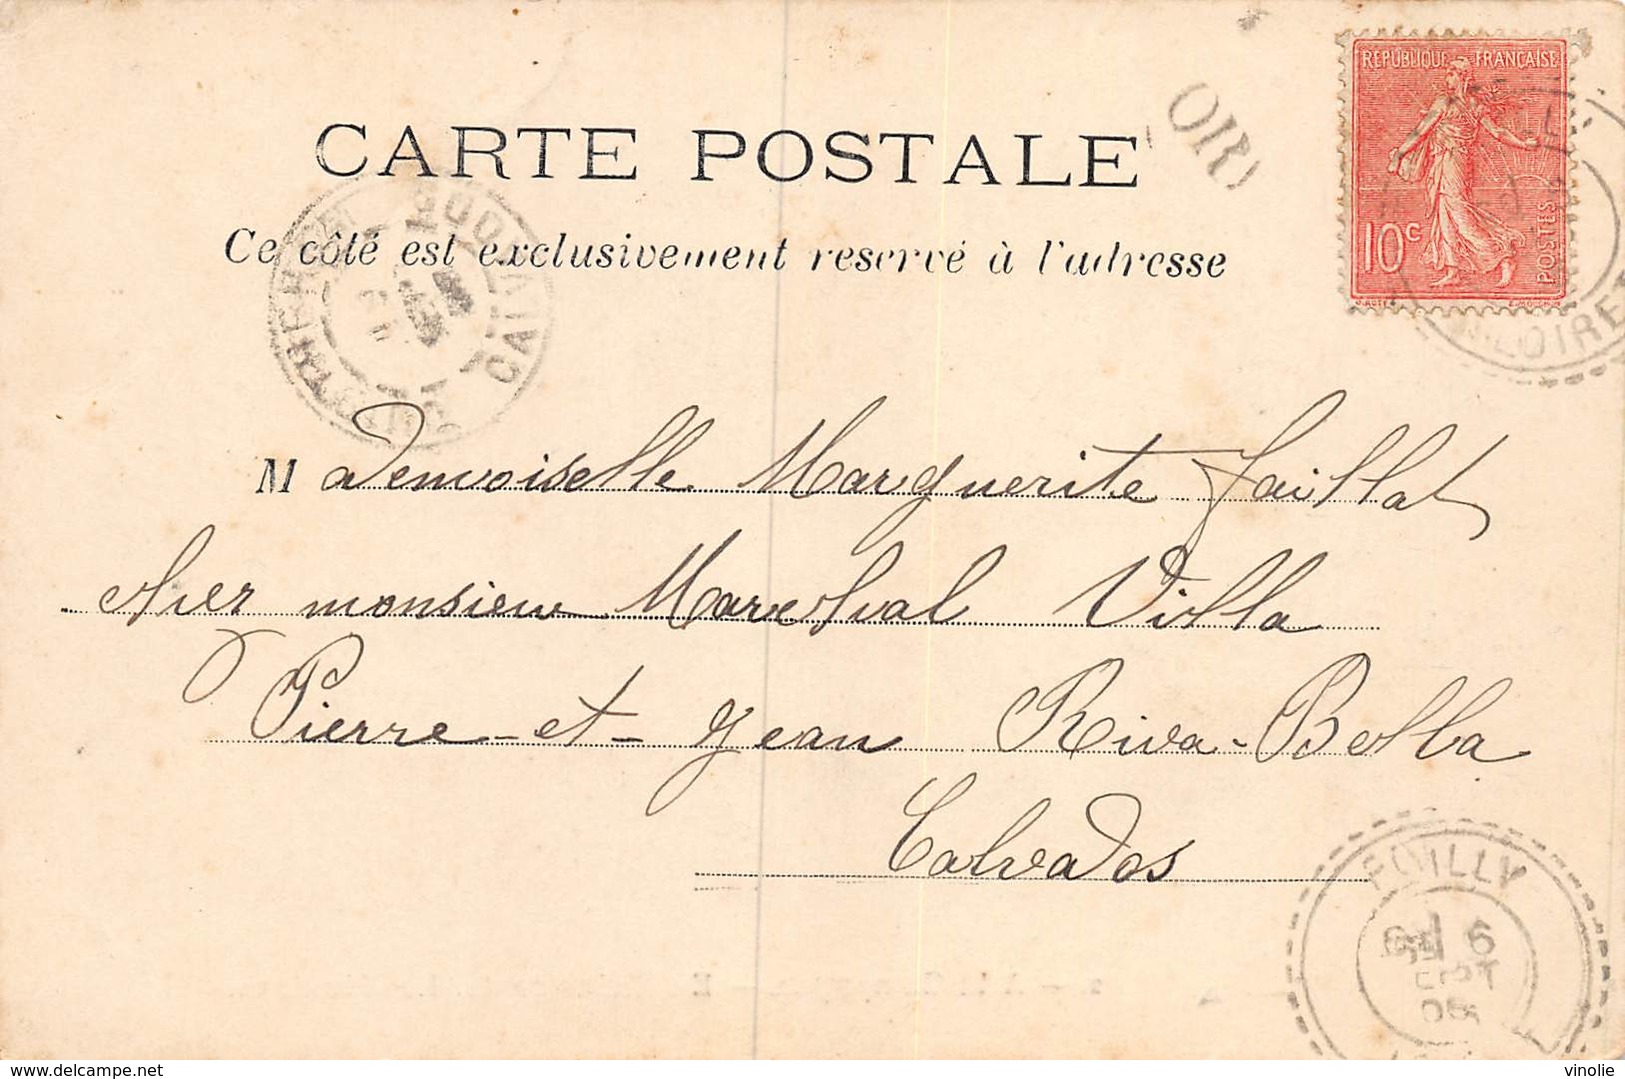 RÉPUBLIQUE FRANÇAISE
10c
POSTES
OR
CARTE POSTALE
Ce côté est exclusivement réservé à l'adresse
LOIRET
Mademoiselle Marguerite Jaillat
chez monsieur Marechal Villa
Pierre-et-Jean Riva-Bella
Calvados
6
SEPT
05
delcampe.net
vinolie